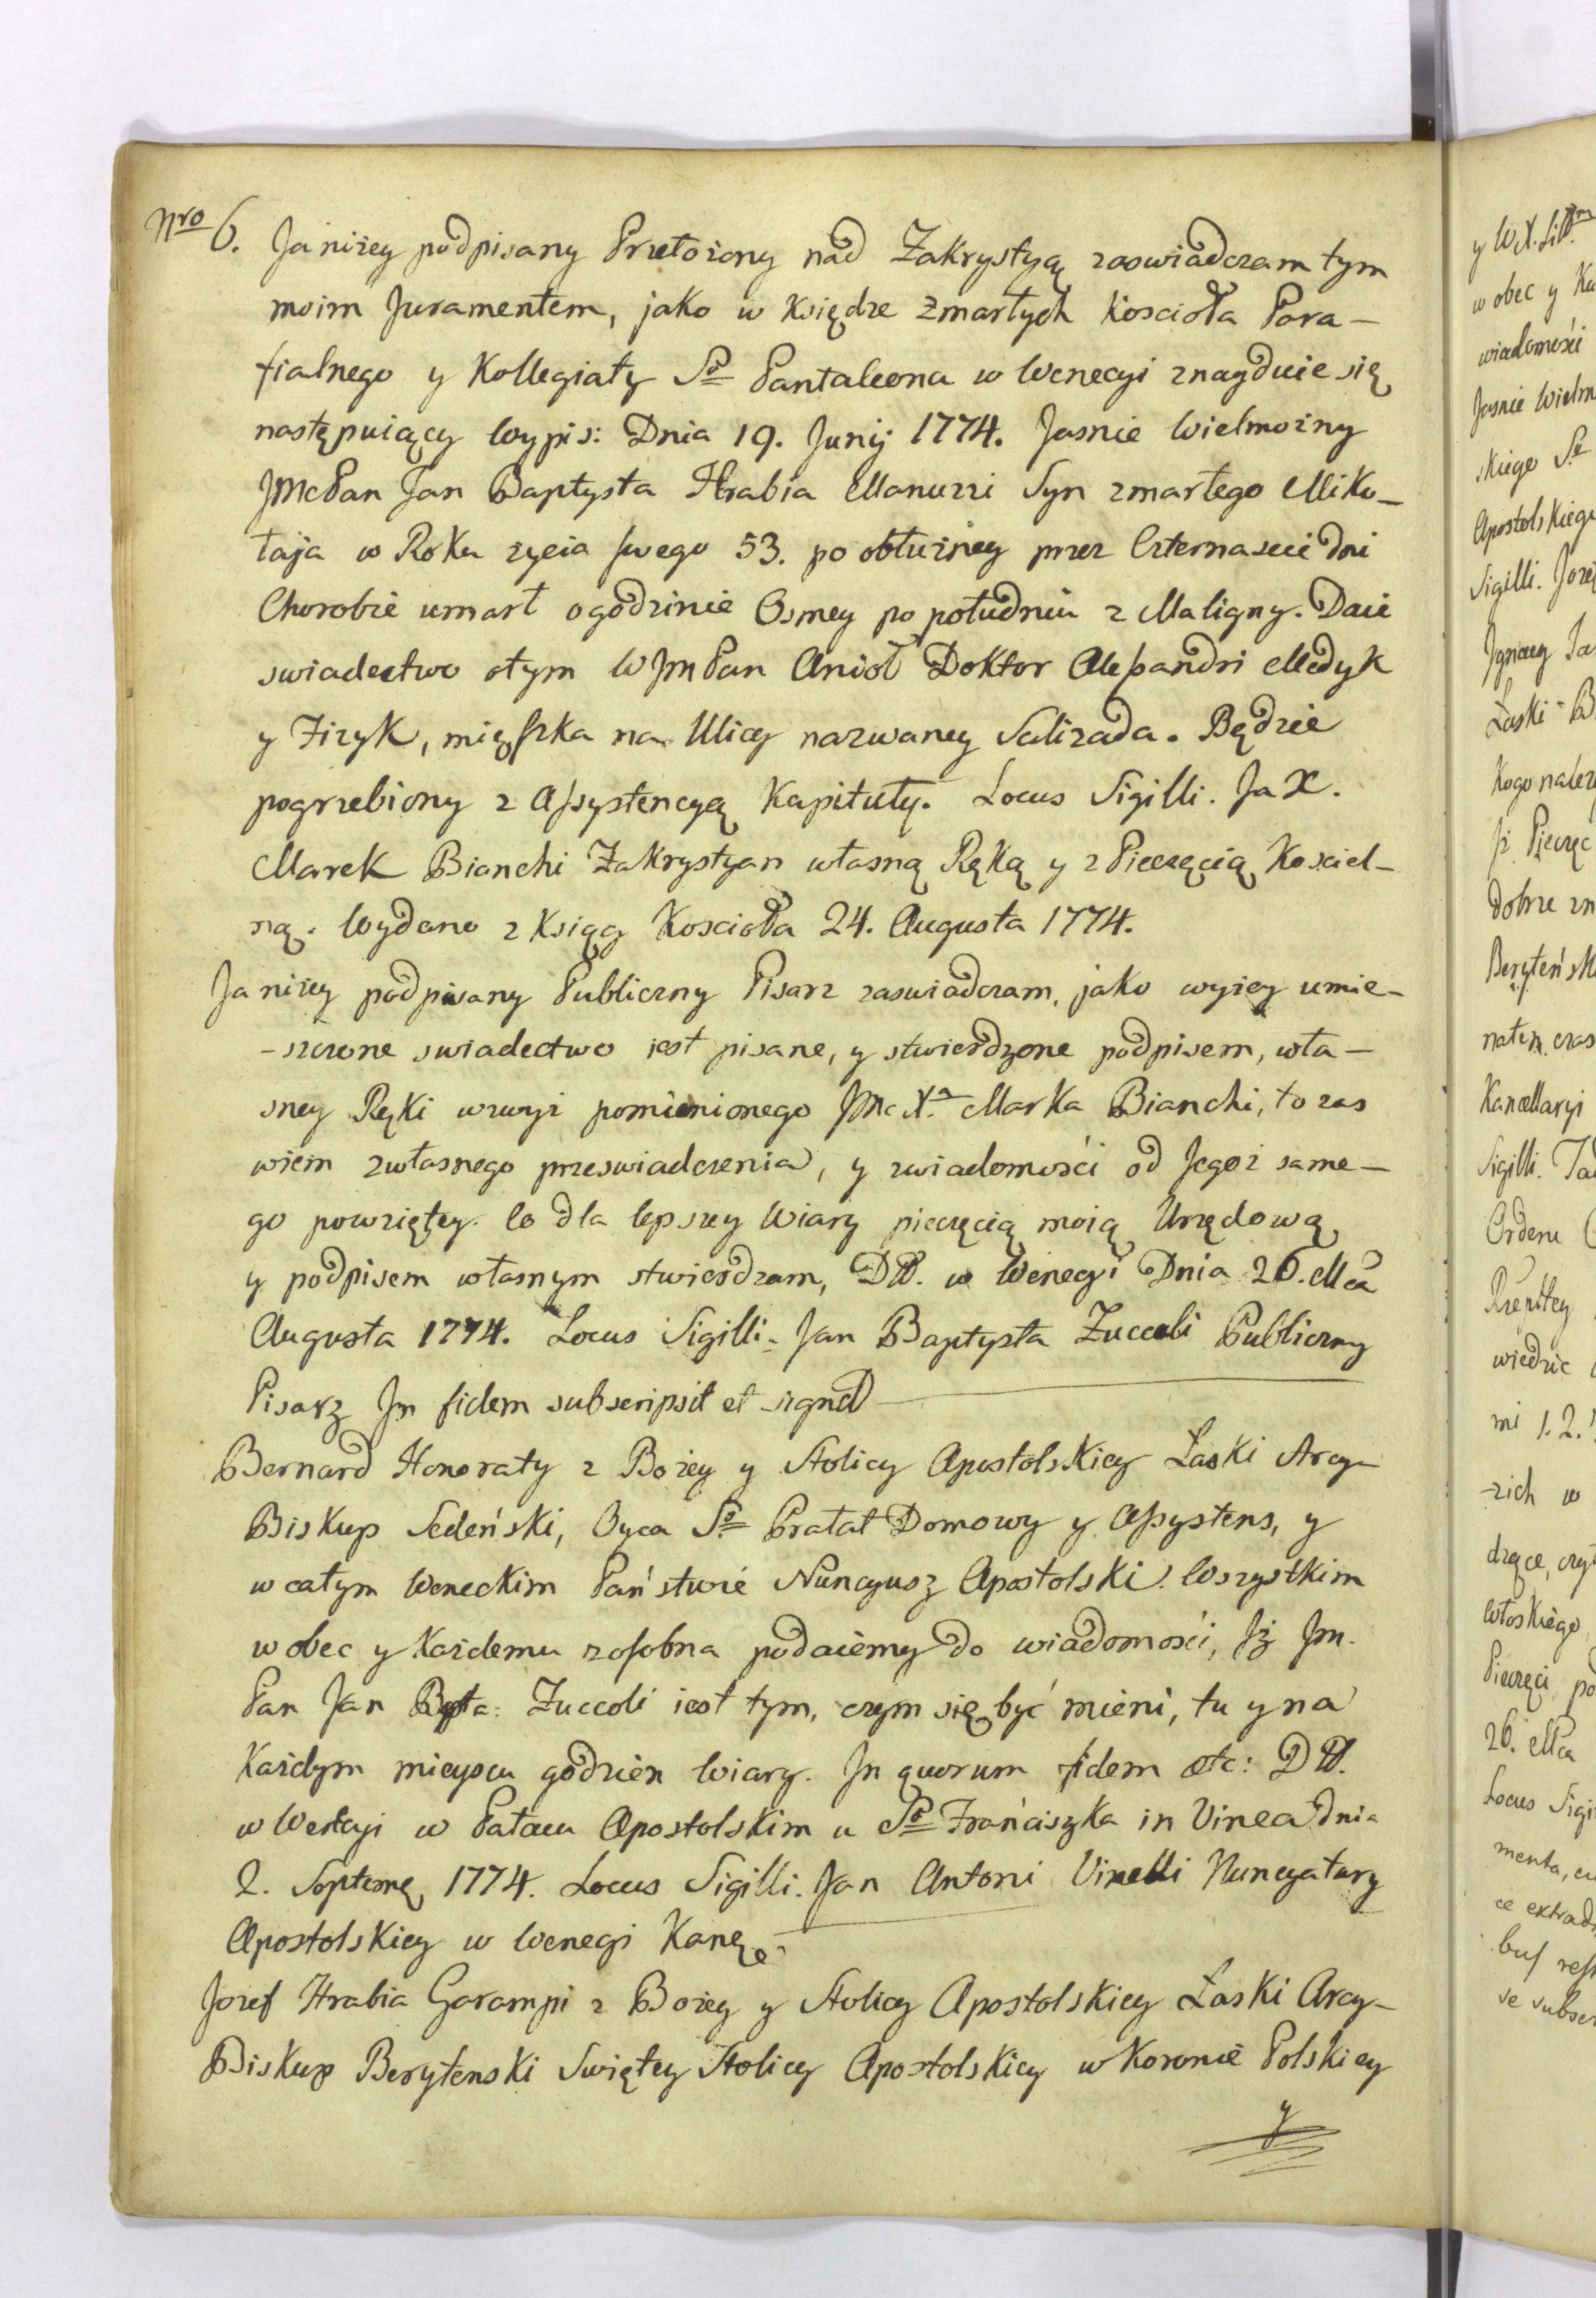 Nro 6. Ja niżey podpisany Przełożony nad Zakrystyą zaswiadczam tym
moim Juramentem, jako w Księdze Zmarłych Koscioła Para-
fialnego y Kollegiaty So Pantaleona w Wenecyi znayduie się
następuiący Wypis: Dnia 19. Junij 1774. Jasnie Wielmożny
JMcPan Jan Baptysta Hrabia Manuzzi Syn zmarłego Miko-
łaja w Roku życia swego 53. po obłużney przez Czternascie dni
Chorobie umarł o godzinie Osmey po południu z Maligny. Daie
swiadectwo otym WJmPan Anioł Doktor Alessandri Medyk
y Fizyk, mięszka na Ulicy nazwaney Salizada. Będzie
pogrzebiony z Assystencyą Kapituły. Locus Sigilli. Ja X.
Marek Bianchi Zakrystyan własną Ręką y z Pieczęcią Kosciel-
ną. Wydano z Ksiąg Koscioła 24. Augusta 1774.
Ja niżey podpisany Publiczny Pisarz zaswiadczam, jako wyżey umie-
-szczone swiadectwo jest pisane, y stwierdzone podpisem, wła-
sney Ręki wzwyż pomienionego JMcXa Marka Bianchi, to zas
wiem zwłasnego przeswiadczenia, y zwiadomości od Jegoż same-
go powziętey. Co dla lepszey Wiary pieczęcią moią Urzędową
y podpisem własnym stwierdzam, Dtt. w Wenecyi Dnia 26. Mca
Augusta 1774. Locus Sigilli. Jan Baptysta Zuccoli Publiczny
Pisarz Jn fidem subscripsit et signd
Bernard Honoraty z Bożey y Stolicy Apostolskiey Łaski Arcy-
Biskup Sedeński, Oyca So Prałat Domowy y Assystens, y
w całym Weneckim Państwie Nuncyusz Apostolski. Wszystkim
w obec y Każdemu zosobna podaiemy do wiadomości, Jż Jm.
Pan Jan Bapta: Zuccoli iest tym, czym się być mieni, tu y na
Każdym mieyscu godzien Wiary. Jn quorum fidem etc: Dtt.
w Wenecyi w Pałacu Apostolskim u So Franciszka in Vinea dnia
2. Septemę 1774. Locus Sigilli. Jan Antoni Vinelli Nuncyatury
Apostolskiey w Wenegi
Jozef Hrabia Garampi z Bożey y Stolicy Apostolskiey Łaski Arcy-
Biskup Berytenski Swiętey Stolicy Apostolskiey w Koronie Polskiey
y
y W.X.
w obec y
wiadomości
Jasnie Wielm
skiego
Apostolskieg
Sigilli.
Jgnacy
Łaski
Kogo należ
Jż Pieczęc
dobrze zn
Beryteńsk
natem czas
Kancellaryi
Sigilli.
Orderu
wiedzie
mi 1. 2.
-zich w
dzące,
włoskiego
Pieczęci
26. Mca
Locus Sigi
menta,
ce extrad
se subscr